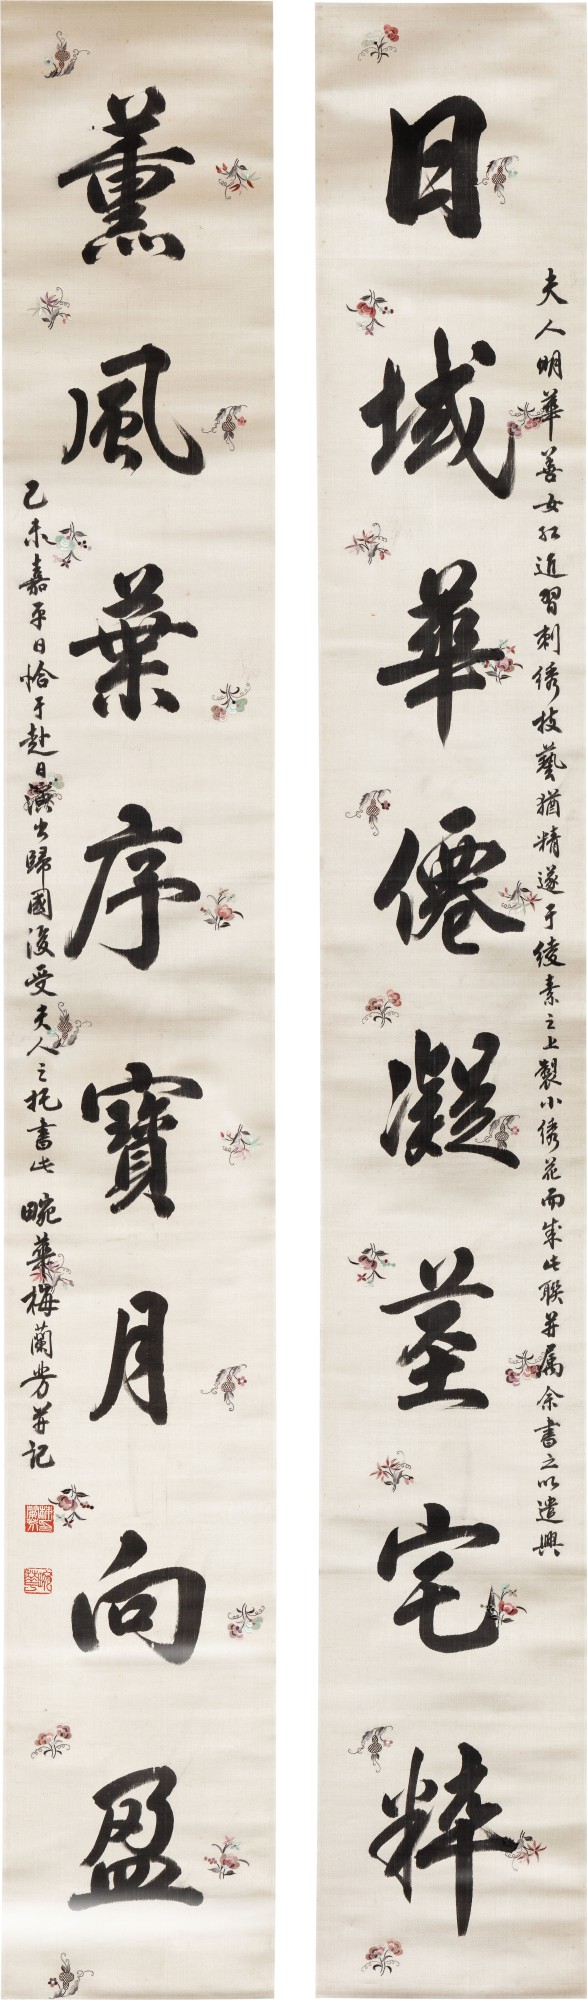 日域華僊凝荃宅粹
夫人明華善女红近習刺绣技藝猶精遂于綾素之上製小绣花而成此聯并属余書之以遣興
薰風葉序寶月向盈
乙未嘉平日恰于赴日演出歸國後受夫人之托書此畹華梅蘭芳并记